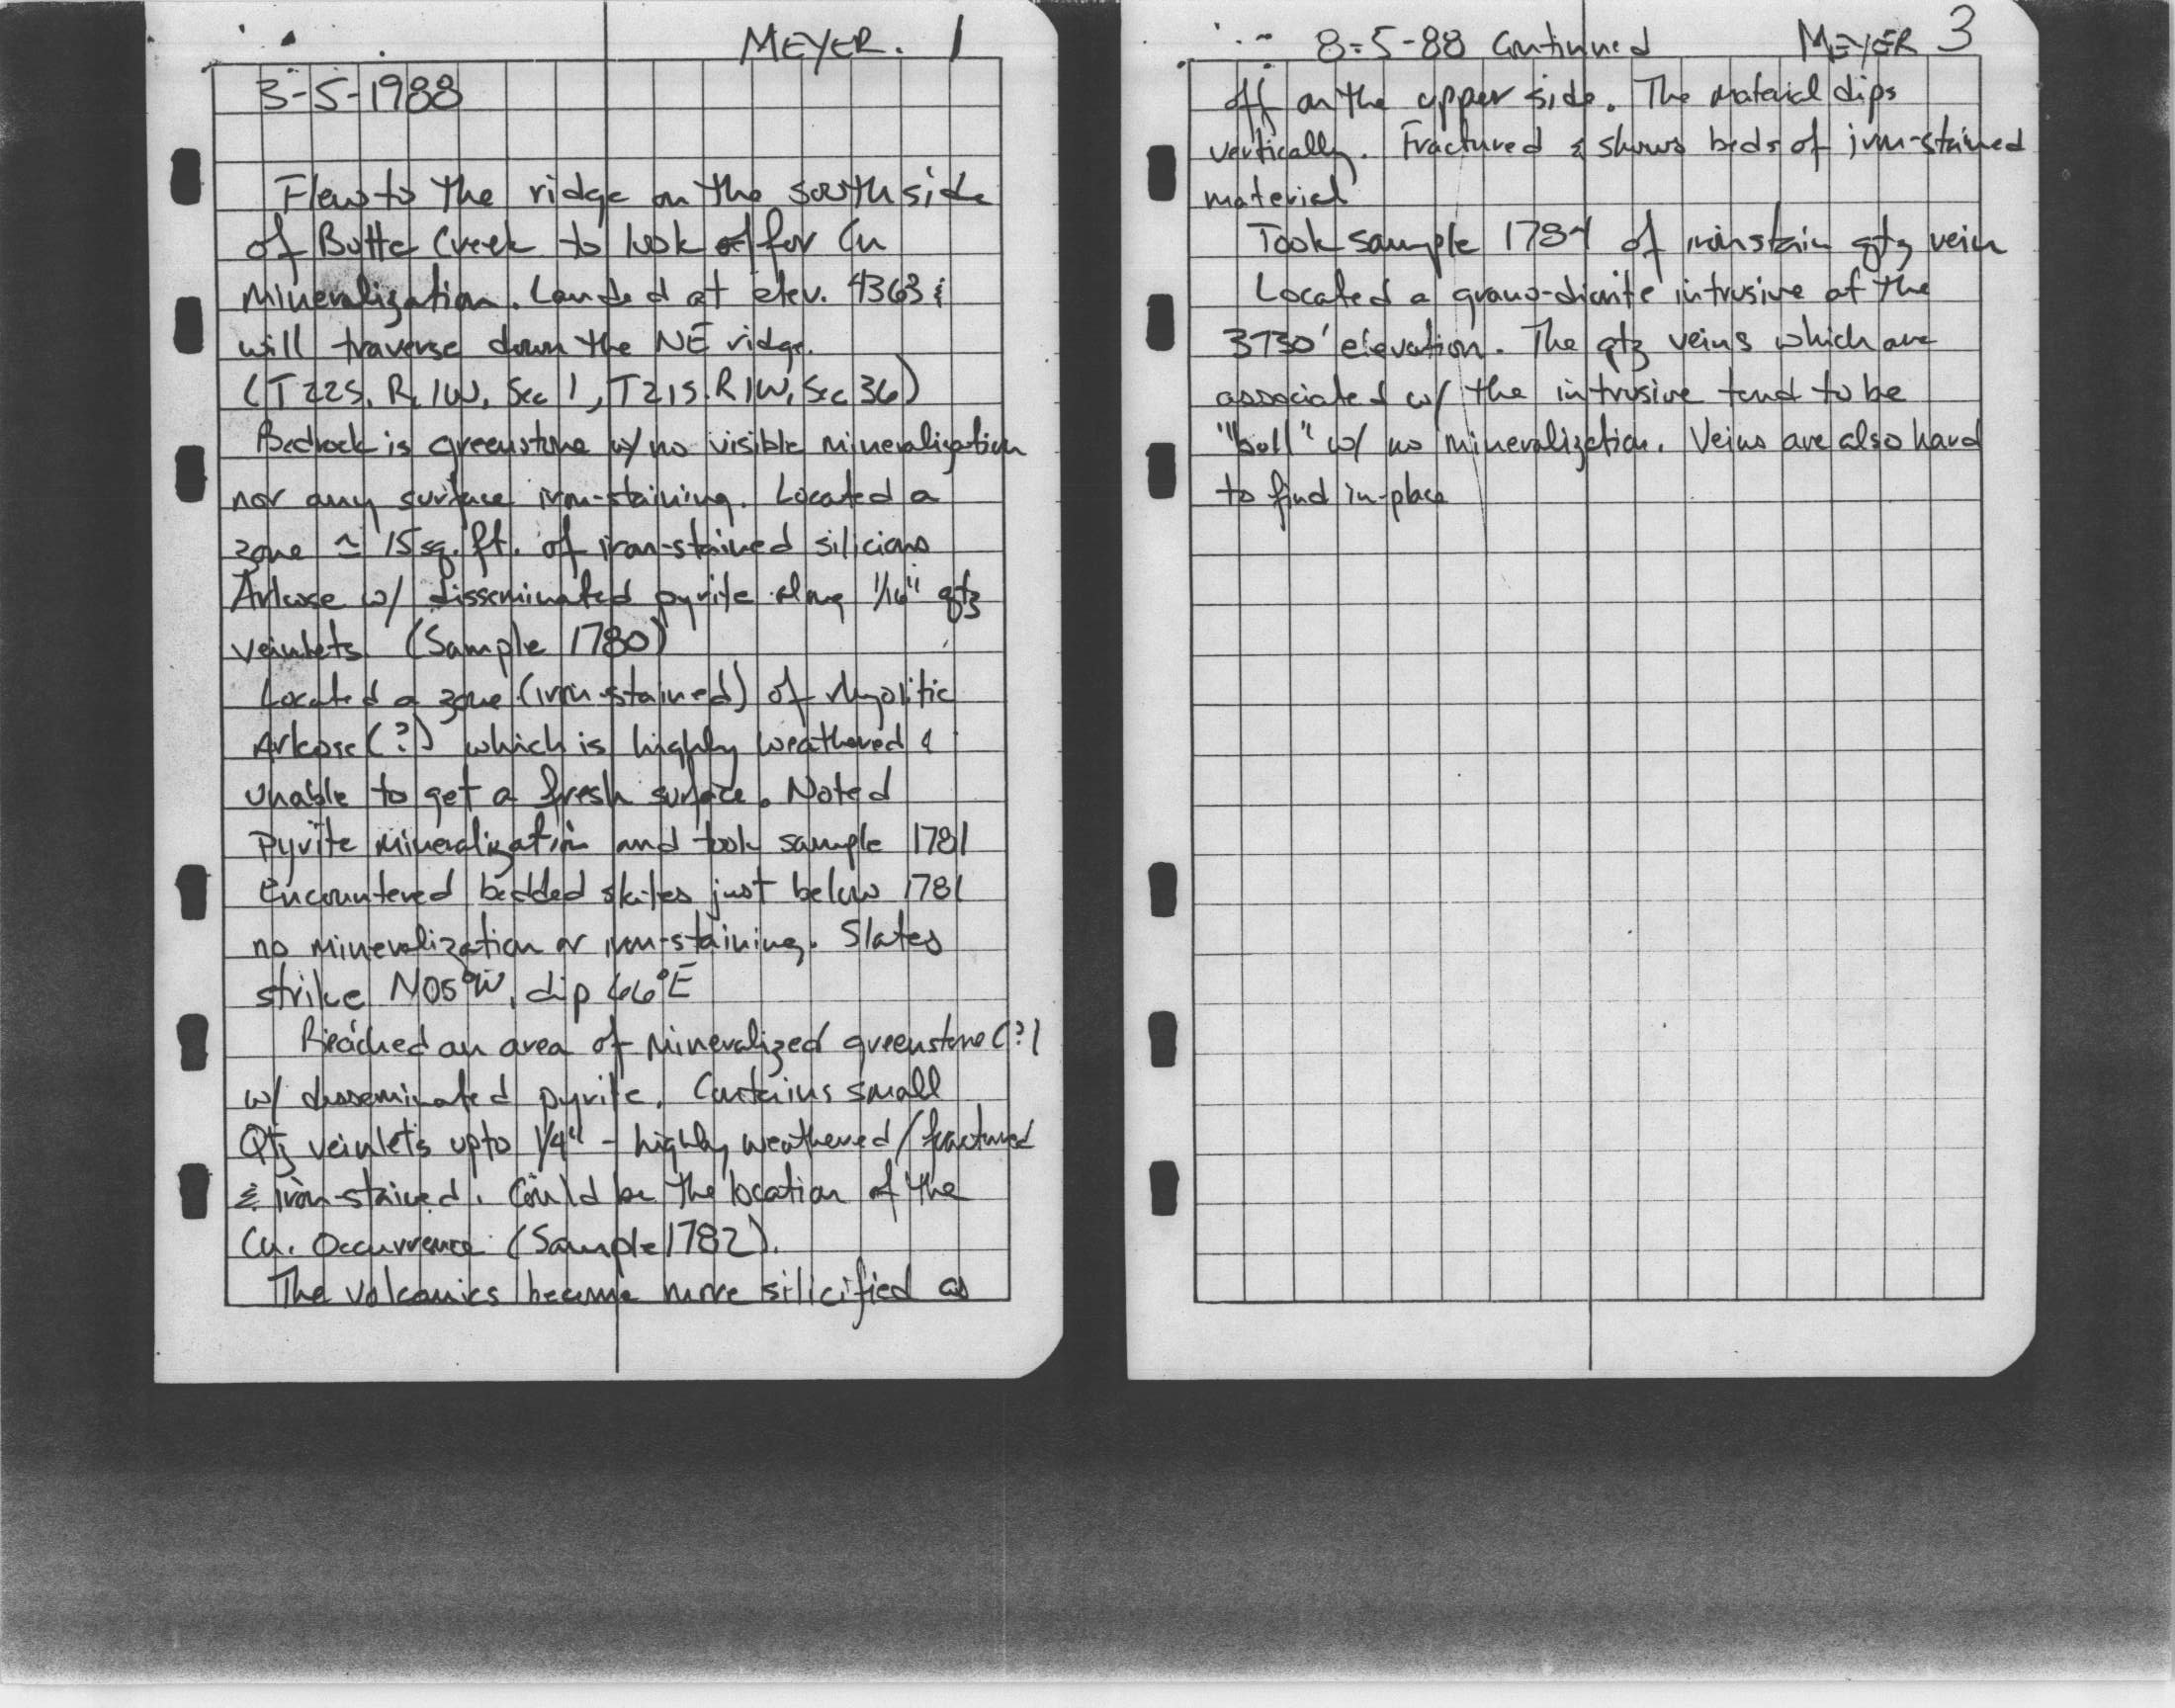 MEYER. 1
3-5-1988
Flew to the ridge on the south side
of Butte Creek to look for Cu
mineralization. Landed at elev. 4363 &
will traverse down the NE ridge.
(T22S, R.1W, Sec 1, T21S. R1W, Sec 36)
Bedrock is greenstone w/ no visible mineralization
nor any surface iron-staining. Located a
zone ≃ 15 sq. ft. of iron-stained silicious
Arkose w/ disseminated pyrite along 1/16" qtz
veinlets. (Sample 1780)
Located a zone (iron-stained) of rhyolitic
Arkose (?) which is highly weathered &
unable to get a fresh surface. Noted
pyrite mineralization and took sample 1781
Encountered bedded slates just below 1781
no mineralization or iron-staining. Slates
strike N05°W, dip 66°E
Reached an area of mineralized greenstone (?)
w/ disseminated pyrite. Contains small
Qtz veinlets upto 1/4" - highly weathered/fractured
& iron-stained. Could be the location of the
Cu. Occurrence (Sample 1782).
The volcanics become more silicified as
8-5-88 Continued MEYER 3
off on the upper side. The material dips
vertically. Fractured & shows beds of iron-stained
material
Took sample 1784 of ironstain qtz vein
Located a grano-diorite intrusive at the
3730' elevation. The qtz veins which are
associated w/ the intrusive tend to be
"bull" w/ no mineralization. Veins are also hard
to find in-place